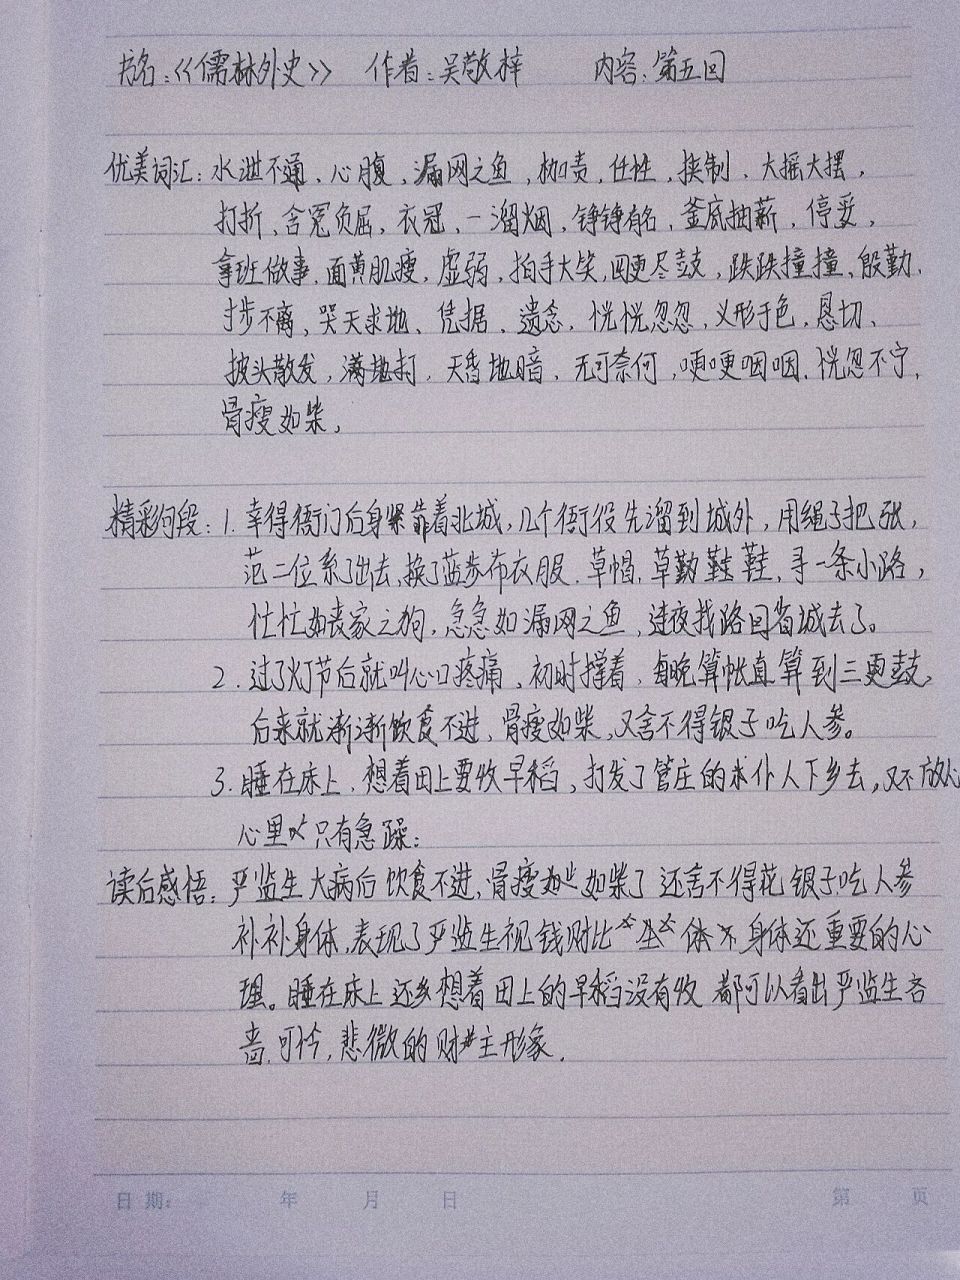 书名:《儒林外史》 作者:吴敬梓 内容:第五回
优美词汇:水泄不通、心腹,漏网之鱼,枷责,任性,挟制、大摇大摆,
打折,含冤负屈,衣冠,一溜烟,铮铮有名,釜底抽薪,停妥,
拿班做事,面黄肌瘦,虚弱,拍手大笑,四更尽鼓,跌跌撞撞、殷勤,
寸步不离,哭天求地、凭据、遗念,恍恍忽忽,义形于色,恳切、
披头散发,满地打,天昏地暗,无可奈何,哽哽咽咽,恍忽不宁,
骨瘦如柴,
精彩句段:1.幸得衙门后身紧靠着北城,几个衙役先溜到城外,用绳子把张,
范二位系了出去,换了蓝布衣服,草帽,草鞋,寻一条小路,
忙忙如丧家之狗,急急如漏网之鱼,连夜找路回省城去了。
2.过了灯节后就叫心口疼痛,初时撑着,每晚算帐直算到三更鼓,
后来就渐渐饮食不进,骨瘦如柴,又舍不得银子吃人参。
3.睡在床上,想着田上要收早稻,打发了管庄的仆人下乡去,又不放心
心里只有急躁;
读后感悟:严监生大病后饮食不进,骨瘦如柴了还舍不得花银子吃人参
补补身体,表现了严监生视钱财比身体还重要的心
理。睡在床上还想着田上的早稻没有收 都可以看出严监生吝
啬,可怜,悲微的财主形象.
日期: 年 月 日 第 页